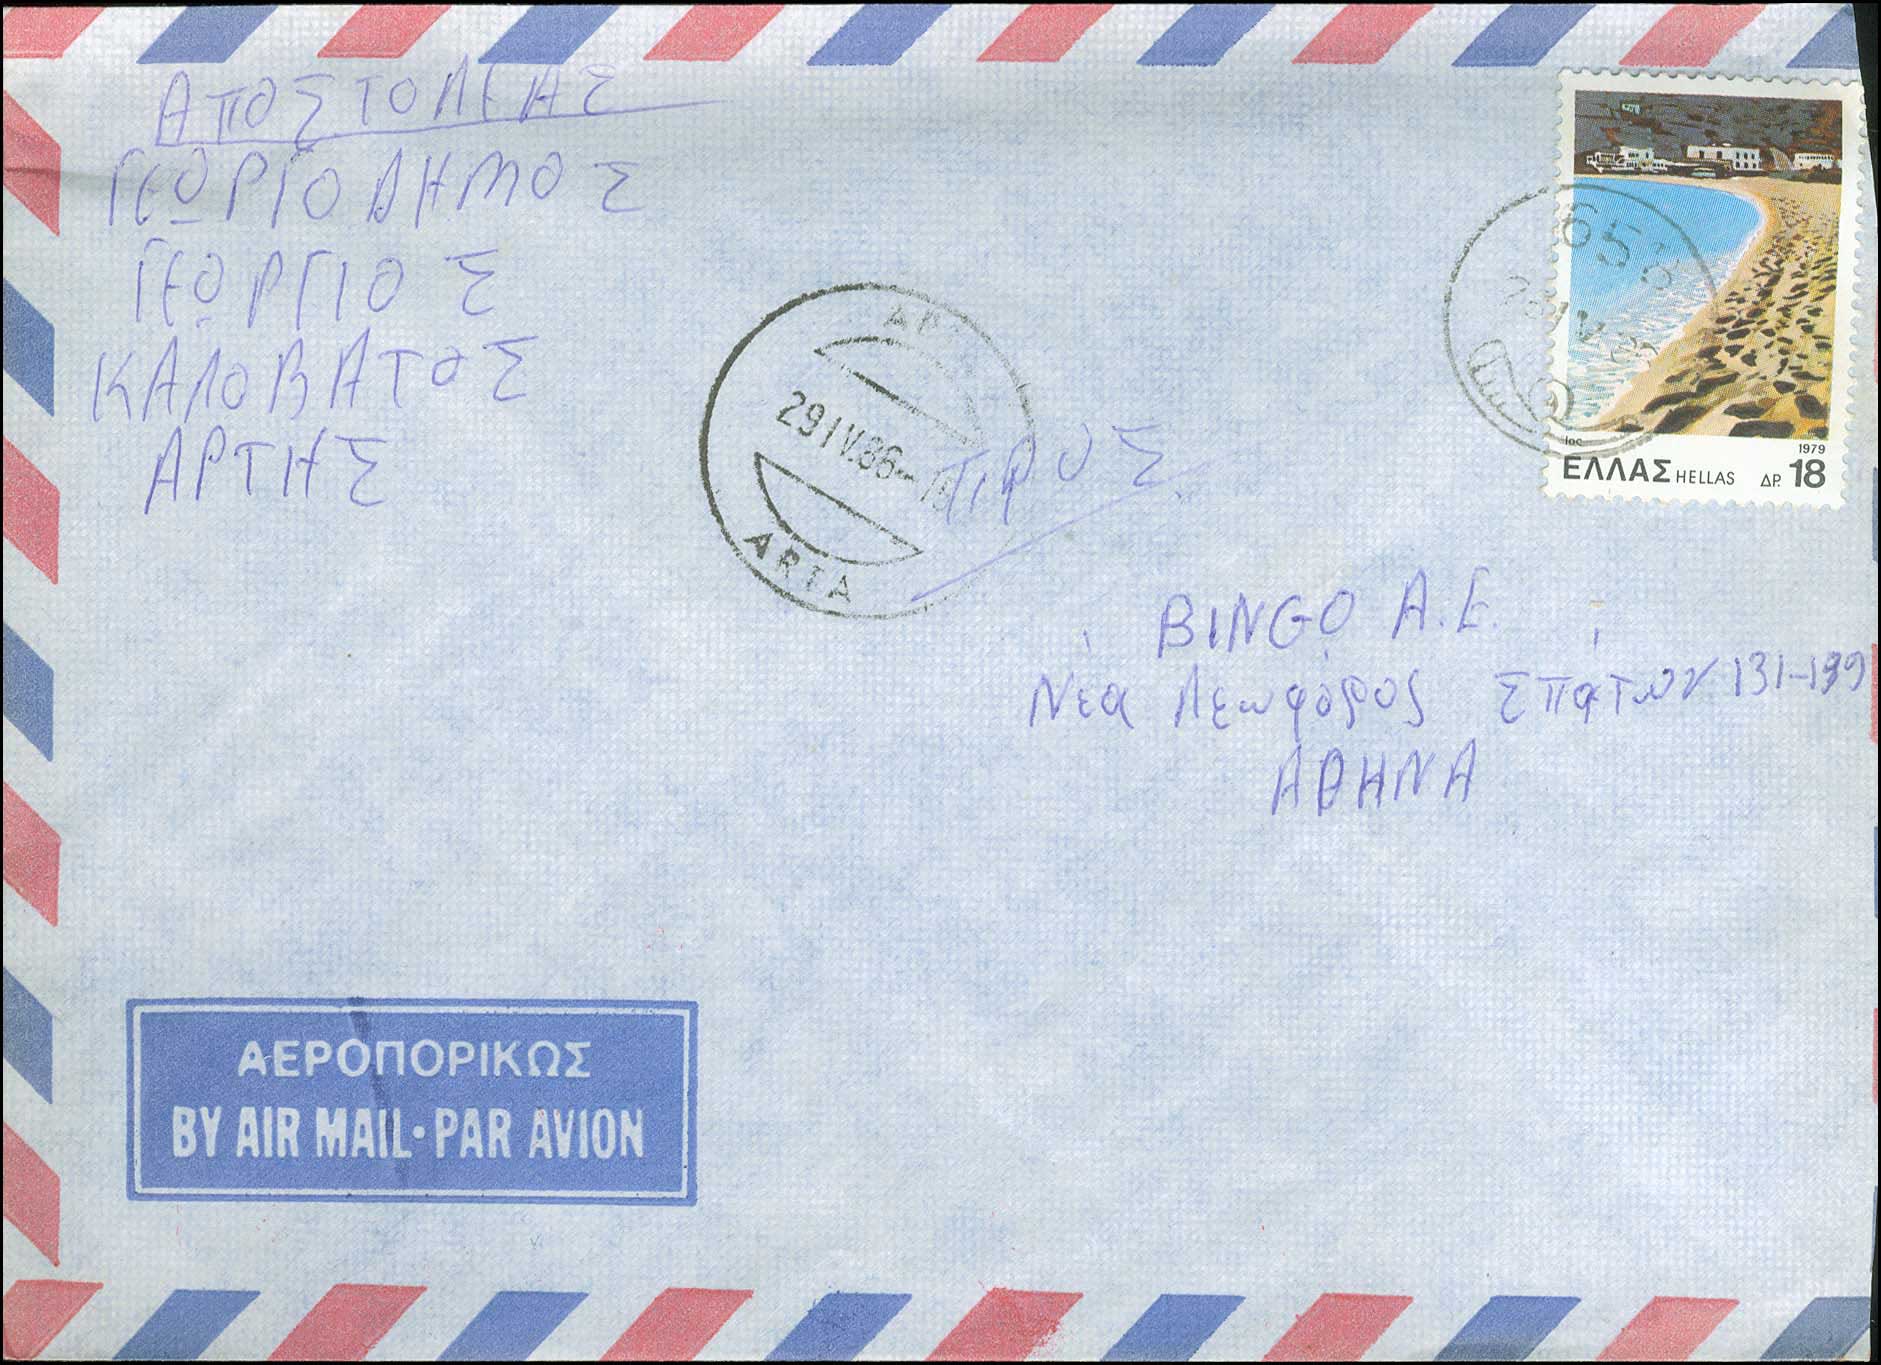 ΑΠΟΣΤΟΛΕΑΣ
ΓΕΩΡΓΟΔΗΜΟΣ
ΓΕΩΡΓΙΟΣ
ΚΑΛΟΒΑΤΟΣ
ΑΡΤΗΣ
29 IV.86-
ARTA
ΠΡΟΣ
656
Ίος
1979
ΕΛΛΑΣ HELLAS ΔΡ. 18
BINGO A.E.
Νέα Λεωφόρος Σπάτων 131-139
ΑΘΗΝΑ
ΑΕΡΟΠΟΡΙΚΩΣ
BY AIR MAIL·PAR AVION